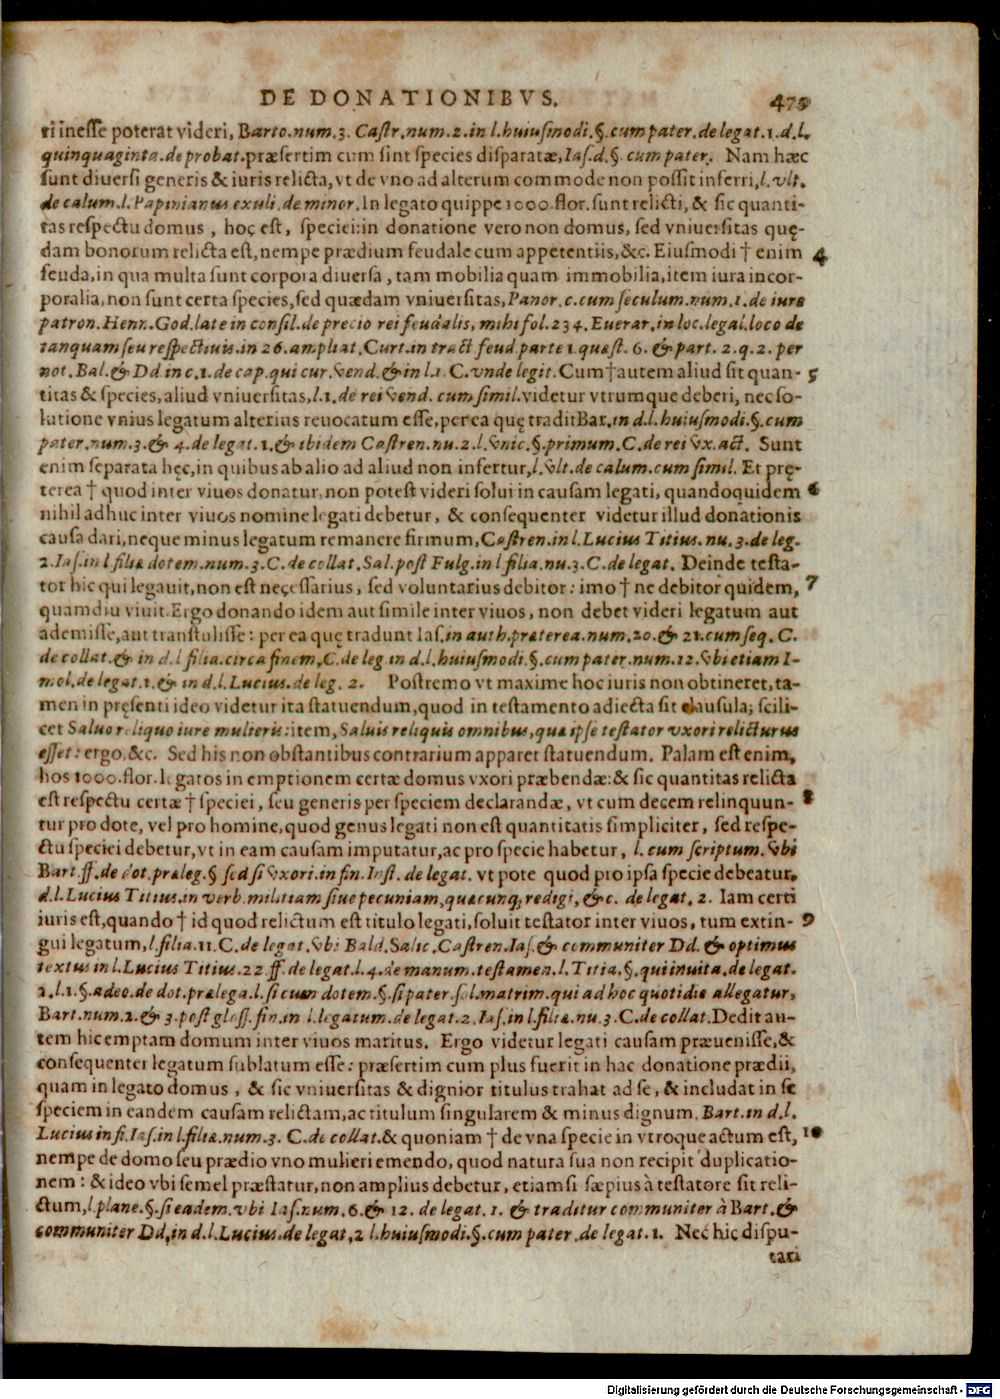 DE DONATIONIBVS. 475
ri inesse poterat videri, Barto.num.3. Castr.num.2.in l.huiusmodi.§.cum pater.de legat.1.d.l.
quinquaginta.de probat.præsertim cum sint species disparatæ,Ias.d.§.cum pater. Nam hæc
sunt diuersi generis & iuris relicta,vt de vno ad alterum commode non possit inferri,l.vlt.
de calum.l.Papinianus exuli.de minor.In legato quippe 1000.flor.sunt relicti,& sic quanti-
tas respectu domus , hoc est, speciei:in donatione vero non domus, sed vniuersitas quę-
dam bonorum relicta est, nempe prædium feudale cum appetentiis,&c. Eiusmodi † enim 4
feuda,in qua multa sunt corpora diuersa , tam mobilia quam immobilia,item iura incor-
poralia,non sunt certa species,sed quædam vniuersitas,Panor.c.cum seculum.num.1.de iure
patron.Henr.God.late in consil.de precio rei feudalis, mihi fol.234.Euerar.in loc.legal.loco de
tanquam seu respectiuis.in 26.ampliat.Curt.in tract feud.parte 1.quæst. 6. & part. 2.q.2. per
not.Bal.& Dd.in c.1.de cap.qui cur.vend.& in l.1. C.vnde legit. Cum†autem aliud sit quan- 5
titas & species,aliud vniuersitas,l.1.de rei vend. cum simil.videtur vtrumque deberi, nec so-
lutione vnius legatum alterius reuocatum esse,per ea quę tradit Bar.in d.l.huiusmodi.§.cum
pater.num.3.& 4.de legat.1.& ibidem Castren.nu.2.l.vnic.§.primum.C.de rei vx.act. Sunt
enim separata hęc,in quibus ab alio ad aliud non infertur,l.vlt.de calum.cum simil. Et prę-
terea † quod inter viuos donatur,non potest videri solui in causam legati, quandoquidem 6
nihil adhuc inter viuos nomine legati debetur, & consequenter videtur illud donationis
causa dari,neque minus legatum remanere firmum,Castren.in l.Lucius Titius.nu.3.de leg.
2.Ias.in l filiæ dotem.num.3.C.de collat.Sal.post Fulg.in l filia.nu.3.C.de legat. Deinde testa-
tor hic qui legauit,non est necessarius, sed voluntarius debitor: imo † ne debitor quidem, 7
quamdiu viuit.Ergo donando idem aut simile inter viuos, non debet videri legatum aut
ademisse,aut transtulisse: per ea quę tradunt Ias.in auth.præterea.num.20.& 21.cum seq. C.
de collat.& in d.l filia.circa finem,C.de leg in d.l.huiusmodi.§.cum pater.num.12.vbi etiam I-
mol.de legat.1.& in d.l.Lucius.de leg. 2. Postremo vt maxime hoc iuris non obtineret,ta-
men in pręsenti ideo videtur ita statuendum,quod in testamento adiecta sit clausula; scili-
cet Saluo reliquo iure mulieris:item,Saluis reliquis omnibus,quæ ipse testator vxori relicturus
esset: ergo,&c. Sed his non obstantibus contrarium apparet statuendum. Palam est enim,
hos 1000.flor.legatos in emptionem certæ domus vxori præbendæ:& sic quantitas relicta
est respectu certæ † speciei, seu generis per speciem declarandæ, vt cum decem relinquun- 8
tur pro dote, vel pro homine,quod genus legati non est quantitatis simpliciter, sed respe-
ctu speciei debetur,vt in eam causam imputatur,ac pro specie habetur, l. cum scriptum.vbi
Bart.ff.de dot.præleg.§ sed si vxori.in fin.Inst.de legat. vt pote quod pro ipsa specie debeatur,
d.l.Lucius Titius.in verb.militiam siue pecuniam,quæcunq; redigi,&c. de legat. 2. Iam certi
iuris est,quando † id quod relictum est titulo legati,soluit testator inter viuos, tum extin- 9
gui legatum,l.filia.11.C.de legat.vbi Bald.Salic.Castren.Ias.& communiter Dd. & optimus
textus in l.Lucius Titius.22 ff.de legat.l.4.de manum.testamen.l.Titia.§.qui inuita.de legat.
2.l.1.§.adeo.de dot.prælega.l.si cum dotem.§.si pater.sol.matrim.qui ad hoc quotidie allegatur,
Bart.num.2.& 3.post gloss.fin.in l.legatum.de legat.2.Ias.in l.filiæ.nu.3.C.de collat.Dedit au-
tem hic emptam domum inter viuos maritus. Ergo videtur legati causam præuenisse,&
consequenter legatum sublatum esse: præsertim cum plus fuerit in hac donatione prædii,
quam in legato domus , & sic vniuersitas & dignior titulus trahat ad se, & includat in se
speciem in eandem causam relictam,ac titulum singularem & minus dignum, Bart.in d.l.
Lucius in fi.Ias.in l.filiæ.num.3. C.de collat.& quoniam † de vna specie in vtroque actum est, 10
nempe de domo seu prædio vno mulieri emendo, quod natura sua non recipit duplicatio-
nem: & ideo vbi semel præstatur,non amplius debetur, etiamsi sæpius à testatore sit reli-
ctum,l.plane.§.si eadem.vbi Ias.num.6.& 12. de legat.1. & traditur communiter à Bart.&
communiter Dd,in d.l.Lucius.de legat,2 l.huiusmodi.§.cum pater.de legat.1. Nec hic dispu-
tari
Digitalisierung gefördert durch die Deutsche Forschungsgemeinschaft - DFG